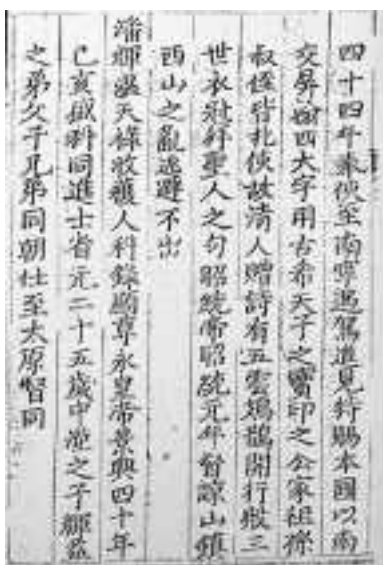 四十四年奉使至南寧迎駕進見特賜本國以南
交屏翰四大字用古希天子之寶印之公家祖孫
叔侄皆北使故清人贈詩有五雲鳷鵲開行殿三
世衣冠拜聖人之句昭統帝昭統元年督諒山鎮
西山之亂逃避不出
潘輝溫天祿收穫人科錄顯尊永皇帝景興四十年
己亥盛科同進士省元二十五歲中之子輝益
之弟父子兄弟同朝仕至太原督同